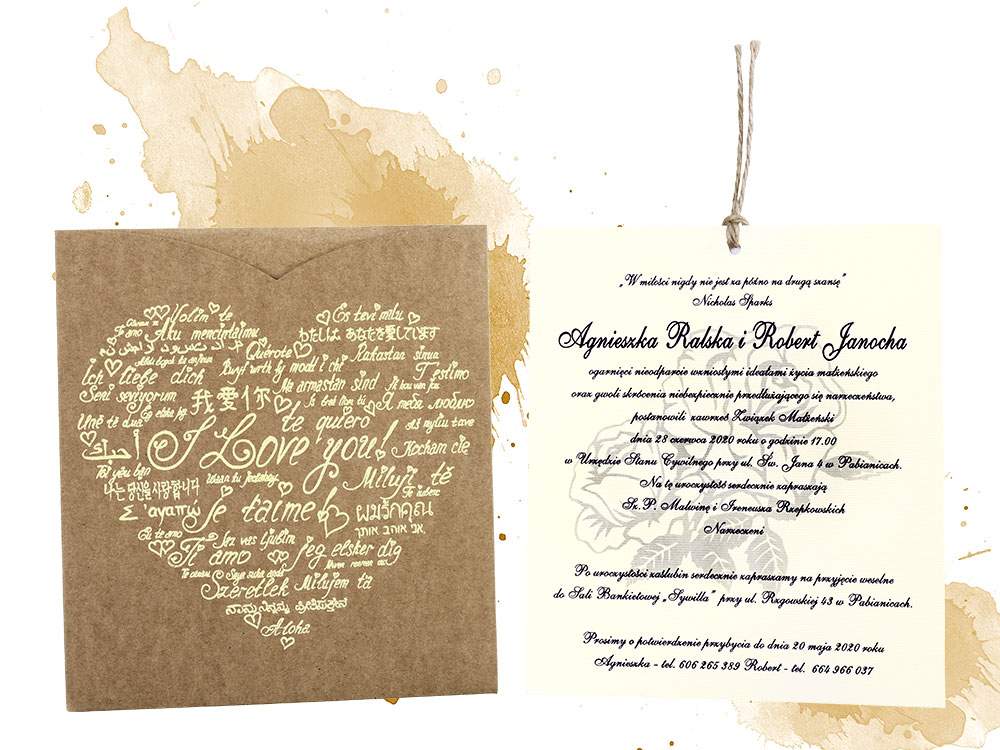 Volim te
Es tevi milu
Ti amo Aku mencintaimu
わたしは あなたを愛しています
Quiérote
Rakastan sinua
Ich liebe dich
Rwy'n wrth fy modd i chi
T'estimo
Seni seviyorum
我愛你
Ma armastan sind
te quiero
Unë të dua
I Love you!
Kocham cię
أحبك
Miluji tě
나는 당신을 사랑합니다
Te iubesc
Σ'αγαπώ
Je t'aime
ผมรักคุณ
אני אוהב אותך
Ti amo
jeg elsker dig
Szeretlek Milujem ťa
Aloha
„W miłości nigdy nie jest za późno na drugą szansę"
Nicholas Sparks
Agnieszka Ralska i Robert Janocha
ogarnięci nieodparcie wzniosłymi ideałami życia małżeńskiego
oraz gwoli skrócenia niebezpiecznie przedłużającego się narzeczeństwa,
postanowili zawrzeć Związek Małżeński
dnia 28 czerwca 2020 roku o godzinie 17.00
w Urzędzie Stanu Cywilnego przy ul. Św. Jana 4 w Pabianicach.
Na tę uroczystość serdecznie zapraszają
Sz. P. Malwinę i Ireneusza Rzepkowskich
Narzeczeni
Po uroczystości zaślubin serdecznie zapraszamy na przyjęcie weselne
do Sali Bankietowej „Sywilla" przy ul. Rzgowskiej 43 w Pabianicach.
Prosimy o potwierdzenie przybycia do dnia 20 maja 2020 roku
Agnieszka - tel. 606 265 389 Robert - tel. 664 966 037